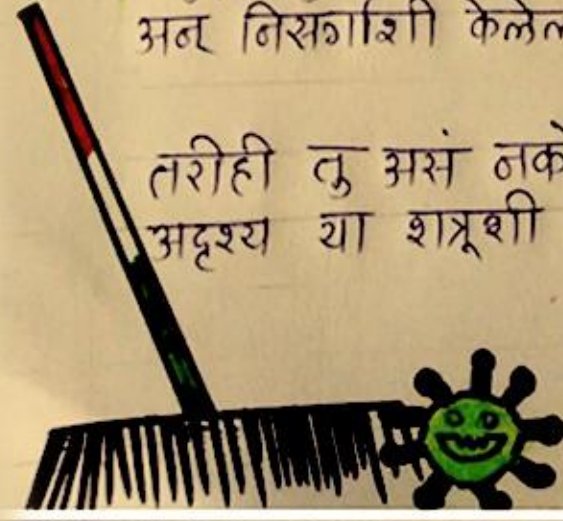 अन् निसर्गाशी केलेल
तरीही तु असं नको
अदृश्य या शत्रूशी